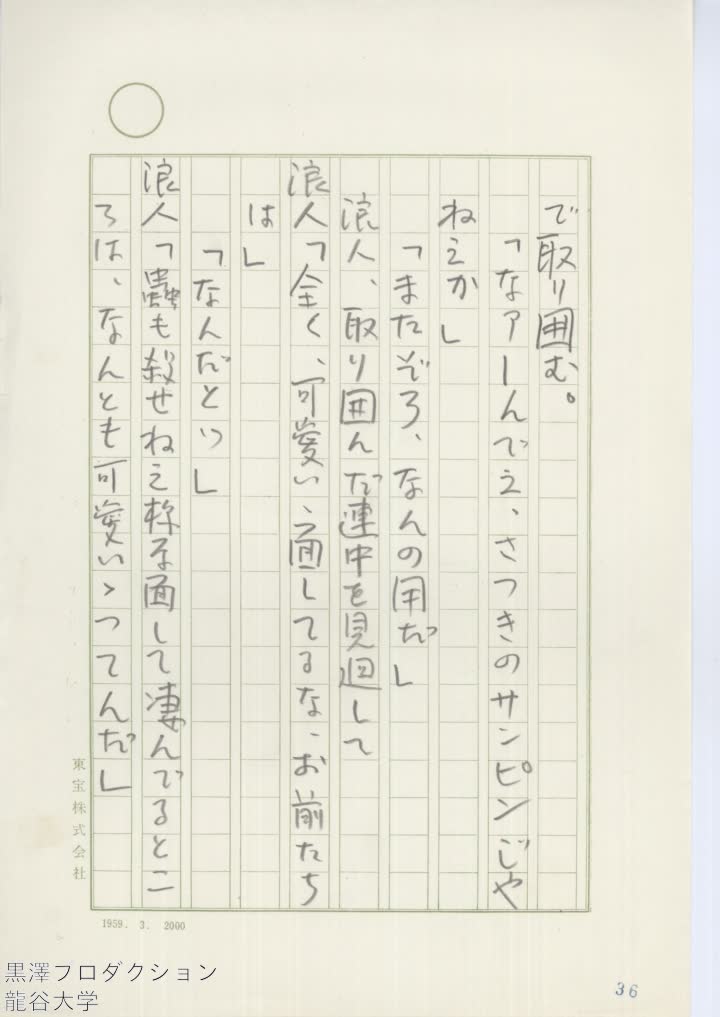 で取り囲む。
「なァーんでえ、さつきのサンピンじや
ねえか」
「またぞろ、なんの用だ」
浪人、取り囲んだ連中を見廻して
浪人「全く、可愛いゝ面してるな、お前たち
は」
「なんだとッ」
浪人「蟲も殺せねえ様な面して凄んでるとこ
ろは、なんとも可愛いゝつてんだ」
東宝株式会社
1959. 3. 2000
36
黒澤プロダクション
龍谷大学